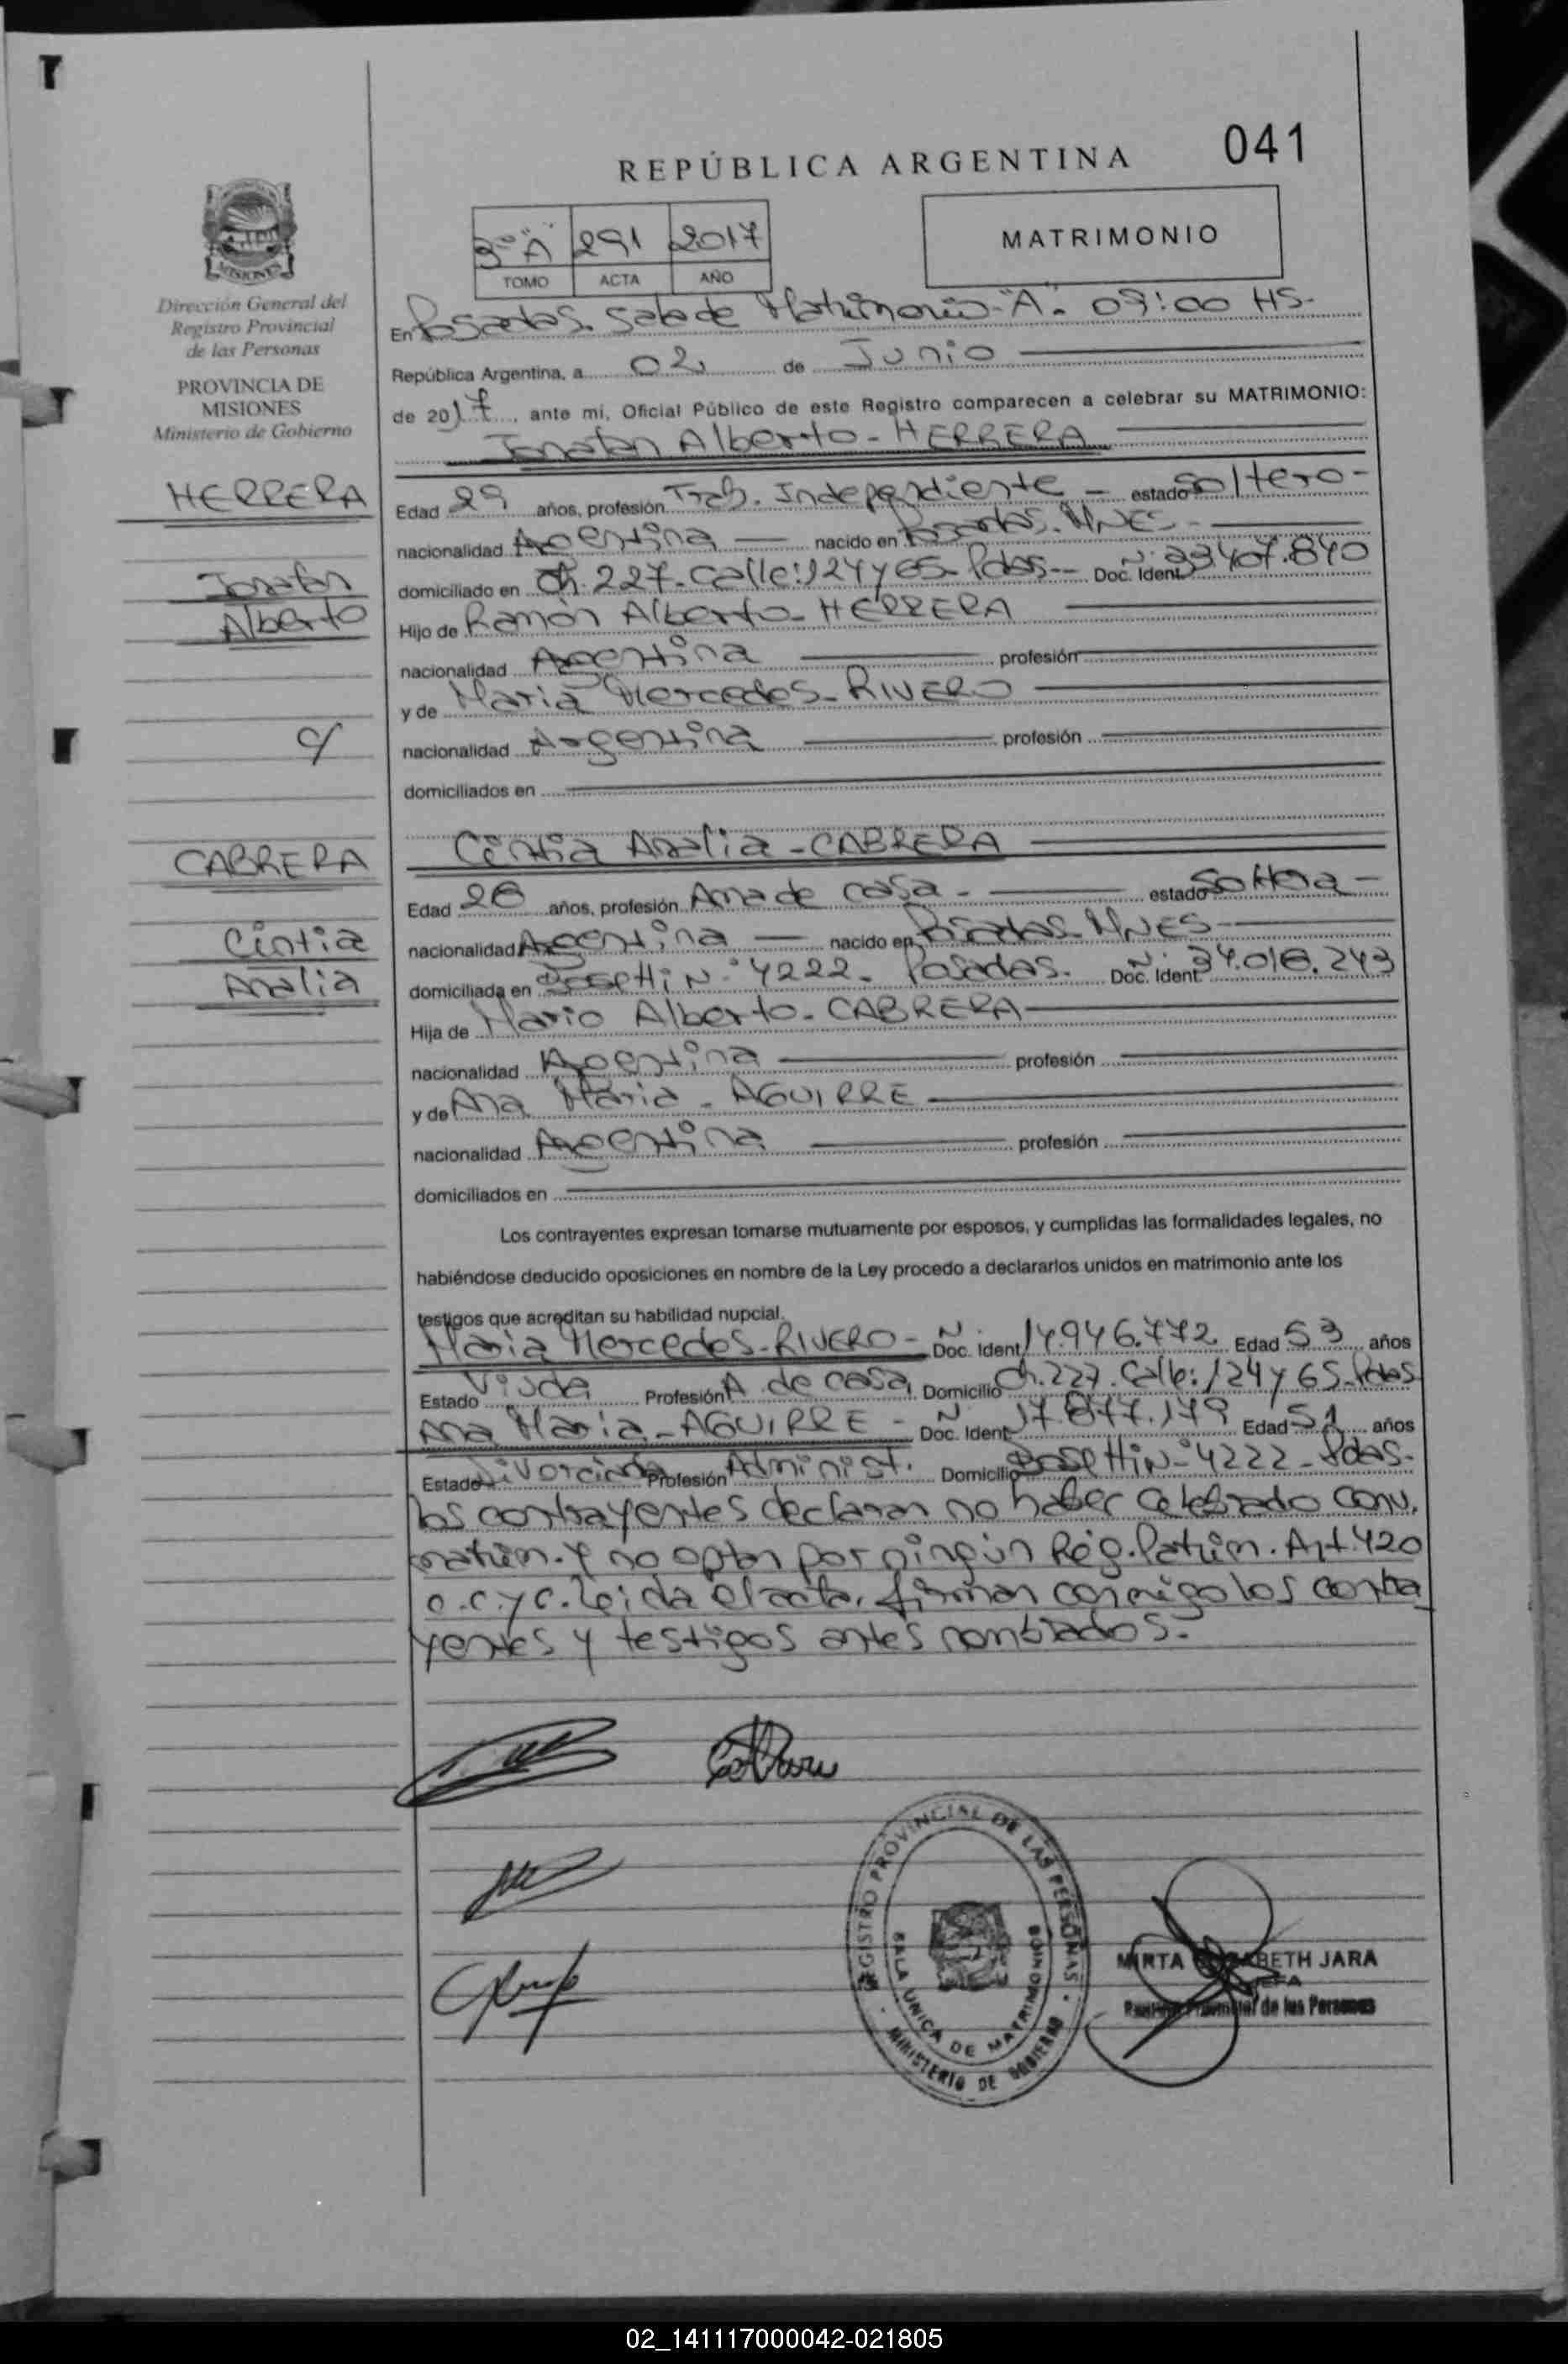 041
REPÚBLICA ARGENTINA
3º "A" 291 2017
TOMO ACTA AÑO
MATRIMONIO
MISIONES
Dirección General del
Registro Provincial
de las Personas
PROVINCIA DE
MISIONES
Ministerio de Gobierno
En Posadas. Sala de Matrimonio "A". 09:00 HS.
República Argentina, a 02 de Junio
de 2017, ante mi, Oficial Público de este Registro comparecen a celebrar su MATRIMONIO:
Jonatan Alberto - HERRERA
HERRERA
Jonatan
Alberto
c/
CABRERA
Cintia
Analia
Edad 29 años, profesión Trab. Independiente - estado Soltero -
nacionalidad Argentina nacido en Posadas. MNES -
domiciliado en Ch. 227. Calle: 124 y 65 - Pdas - Doc. Ident Nº 33.407.840
Hijo de Ramón Alberto - HERRERA
nacionalidad Argentina profesión
y de Maria Mercedes - RIVERO
nacionalidad Argentina profesión
domiciliados en
Cintia Analia - CABRERA
Edad 28 años, profesión Ama de casa - estado Soltera -
nacionalidad Argentina nacido en Posadas - MNES -
domiciliada en Bosetti Nº 4222 - Posadas. Doc. Ident Nº 34.018.243
Hija de Mario Alberto - CABRERA
nacionalidad Argentina profesión
y de Ana Maria - AGUIRRE
nacionalidad Argentina profesión
domiciliados en
Los contrayentes expresan tomarse mutuamente por esposos, y cumplidas las formalidades legales, no
habiéndose deducido oposiciones en nombre de la Ley procedo a declararlos unidos en matrimonio ante los
testigos que acreditan su habilidad nupcial.
Maria Mercedes - RIVERO - Doc. Ident Nº 14.946.772 Edad 53 años
Estado Viuda Profesión A. de casa Domicilio Ch. 227. Calle: 124 y 65 - Pdas
Ana Maria - AGUIRRE - Doc. Ident Nº 17.877.179 Edad 51 años
Estado Divorciada Profesión Administ. Domicilio Bosetti Nº 4222 - Pdas.
los contrayentes declaran no haber celebrado conv.
matrim. Y no optan por ningún Rég. Patrim. Art. 420
c.c. y c. Leida el acta, firman conmigo los contra
yentes y testigos antes nombrados.-
REGISTRO PROVINCIAL DE LAS PERSONAS
SALA UNICA DE MATRIMONIOS
MINISTERIO DE GOBIERNO
MIRTA JARA
JEFA
Registro Provincial de las Personas
02_141117000042-021805